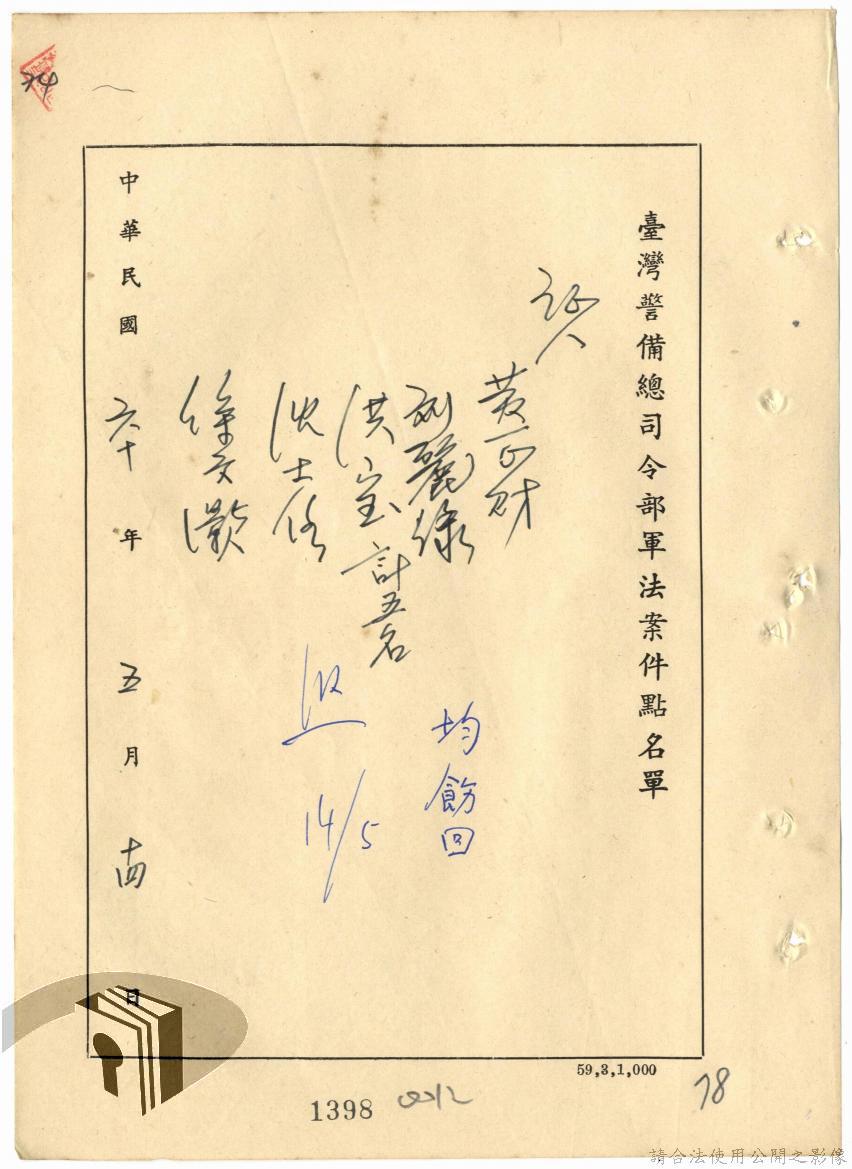 臺灣警備總司令部軍法案件點名單
証人
黃正財
劉麗綠
洪宝
計五名
沈士
徐文
均飭回
14/5
中華民國六十年五月十四日
59,3,1,000
1398
78
74
請合法使用公開之影像